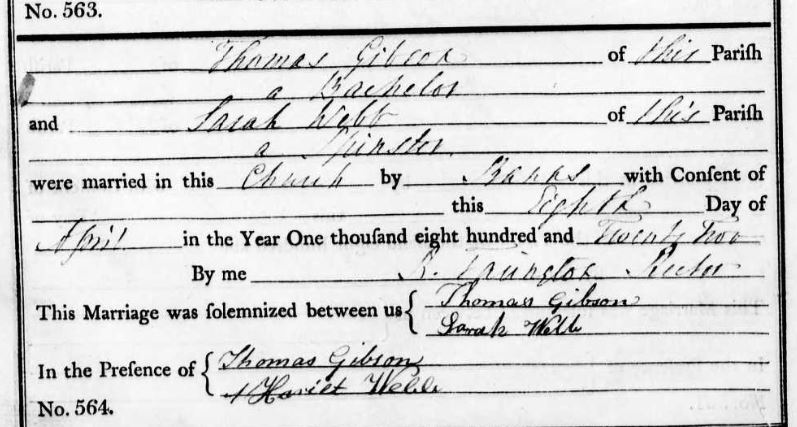 No. 563.
Thomas Gibson of this Pariſh
a Bachelor
and Sarah Webb of this Pariſh
a Spinster
were married in this Church by Banns with Conſent of
this Eighth Day of
April in the Year One thouſand eight hundred and Twenty Two
By me R. Rector
This Marriage was ſolemnized between us { Thomas Gibson
Sarah Webb
In the Preſence of { Thomas Gibson
Hariet Webb
No. 564.